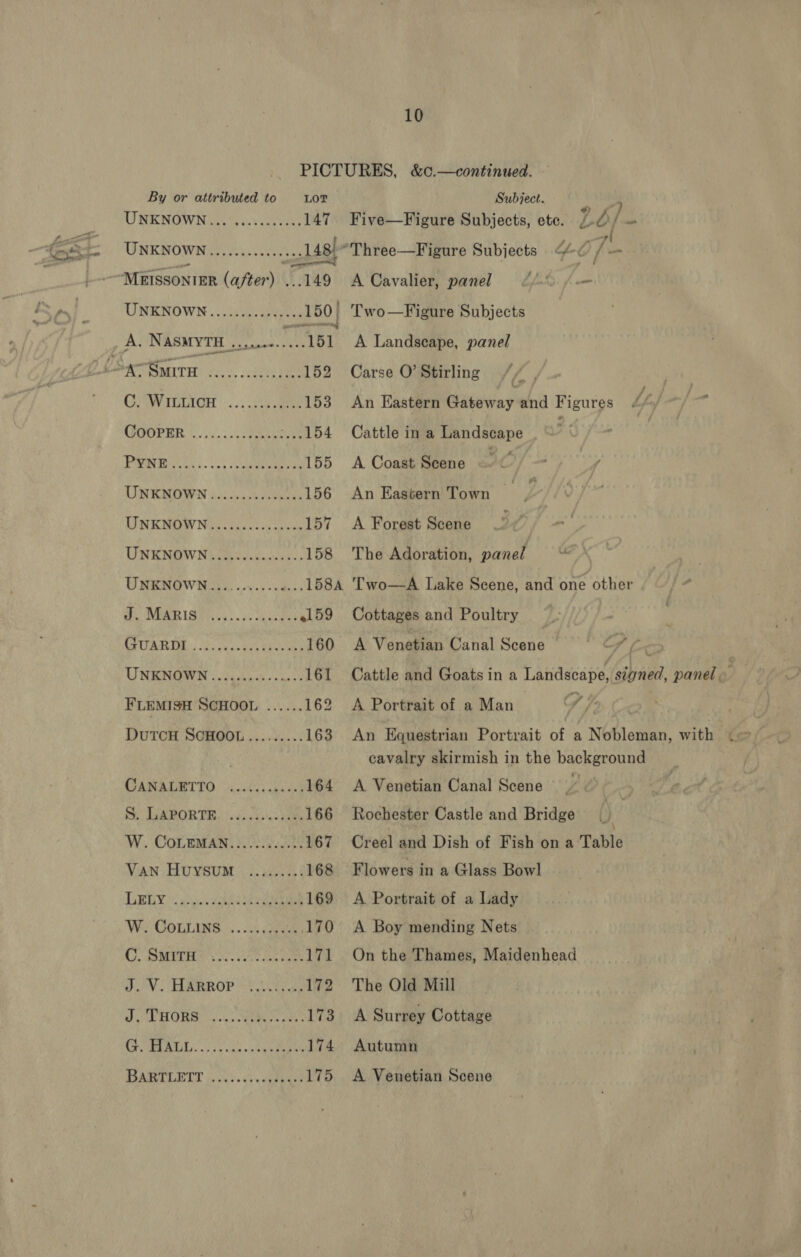 10
PICTURES, &c.—continued.
By or attributed to LOT Subject.
UNKNOWN... ............ 147 Five—Figure Subjects, etc.
UNKNOWN............... 148 Three—Figure Subjects
MEISSONIER (after) ...149 A Cavalier, panel
UNKNOWN............... 150 Two—Figure Subjects
A. NASMYTH ............151 A Landscape, panel
A. SMITH ...............152 Carse O' Stirling
C. WILLICH ............153 An Eastern Gateway and Figures
COOPER ..................154 Cattle in a Landscape
PYNE .....................155 A Coast Scene
UNKNOWN...............156 An Eastern Town
UNKNOWN...............157 A Forest Scene
UNKNOWN...............158 The Adoration, panel
UNKNOWN...............158A Two—A Lake Scene, and one other
J. MARIS ...............159 Cottages and Poultry
GUARDI ..................160 A Venetian Canal Scene
UNKNOWN...............161 Cattle and Goats in a Landscape, signed, panel
FLEMISH SCHOOL ......162 A Portrait of a Man
DUTCH SCHOOL.........163 An Equestrian Portrait of a Nobleman, with
cavalry skirmish in the background
CANALETTO ............164 A Venetian Canal Scene
S. LAPORTE ............166 Rochester Castle and Bridge
W. COLEMAN............167 Creel and Dish of Fish on a Table
VAN HUYSUM .........168 Flowers in a Glass Bowl
LELY .....................169 A Portrait of a Lady
W. COLLINS ............170 A Boy mending Nets
C. SMITH ...............171 On the Thames, Maidenhead
J. V. HARROP .........172 The Old Mill
J. THORS ...............173 A Surrey Cottage
G. HALL..................174 Autumn
BARTLETT ...............175 A Venetian Scene